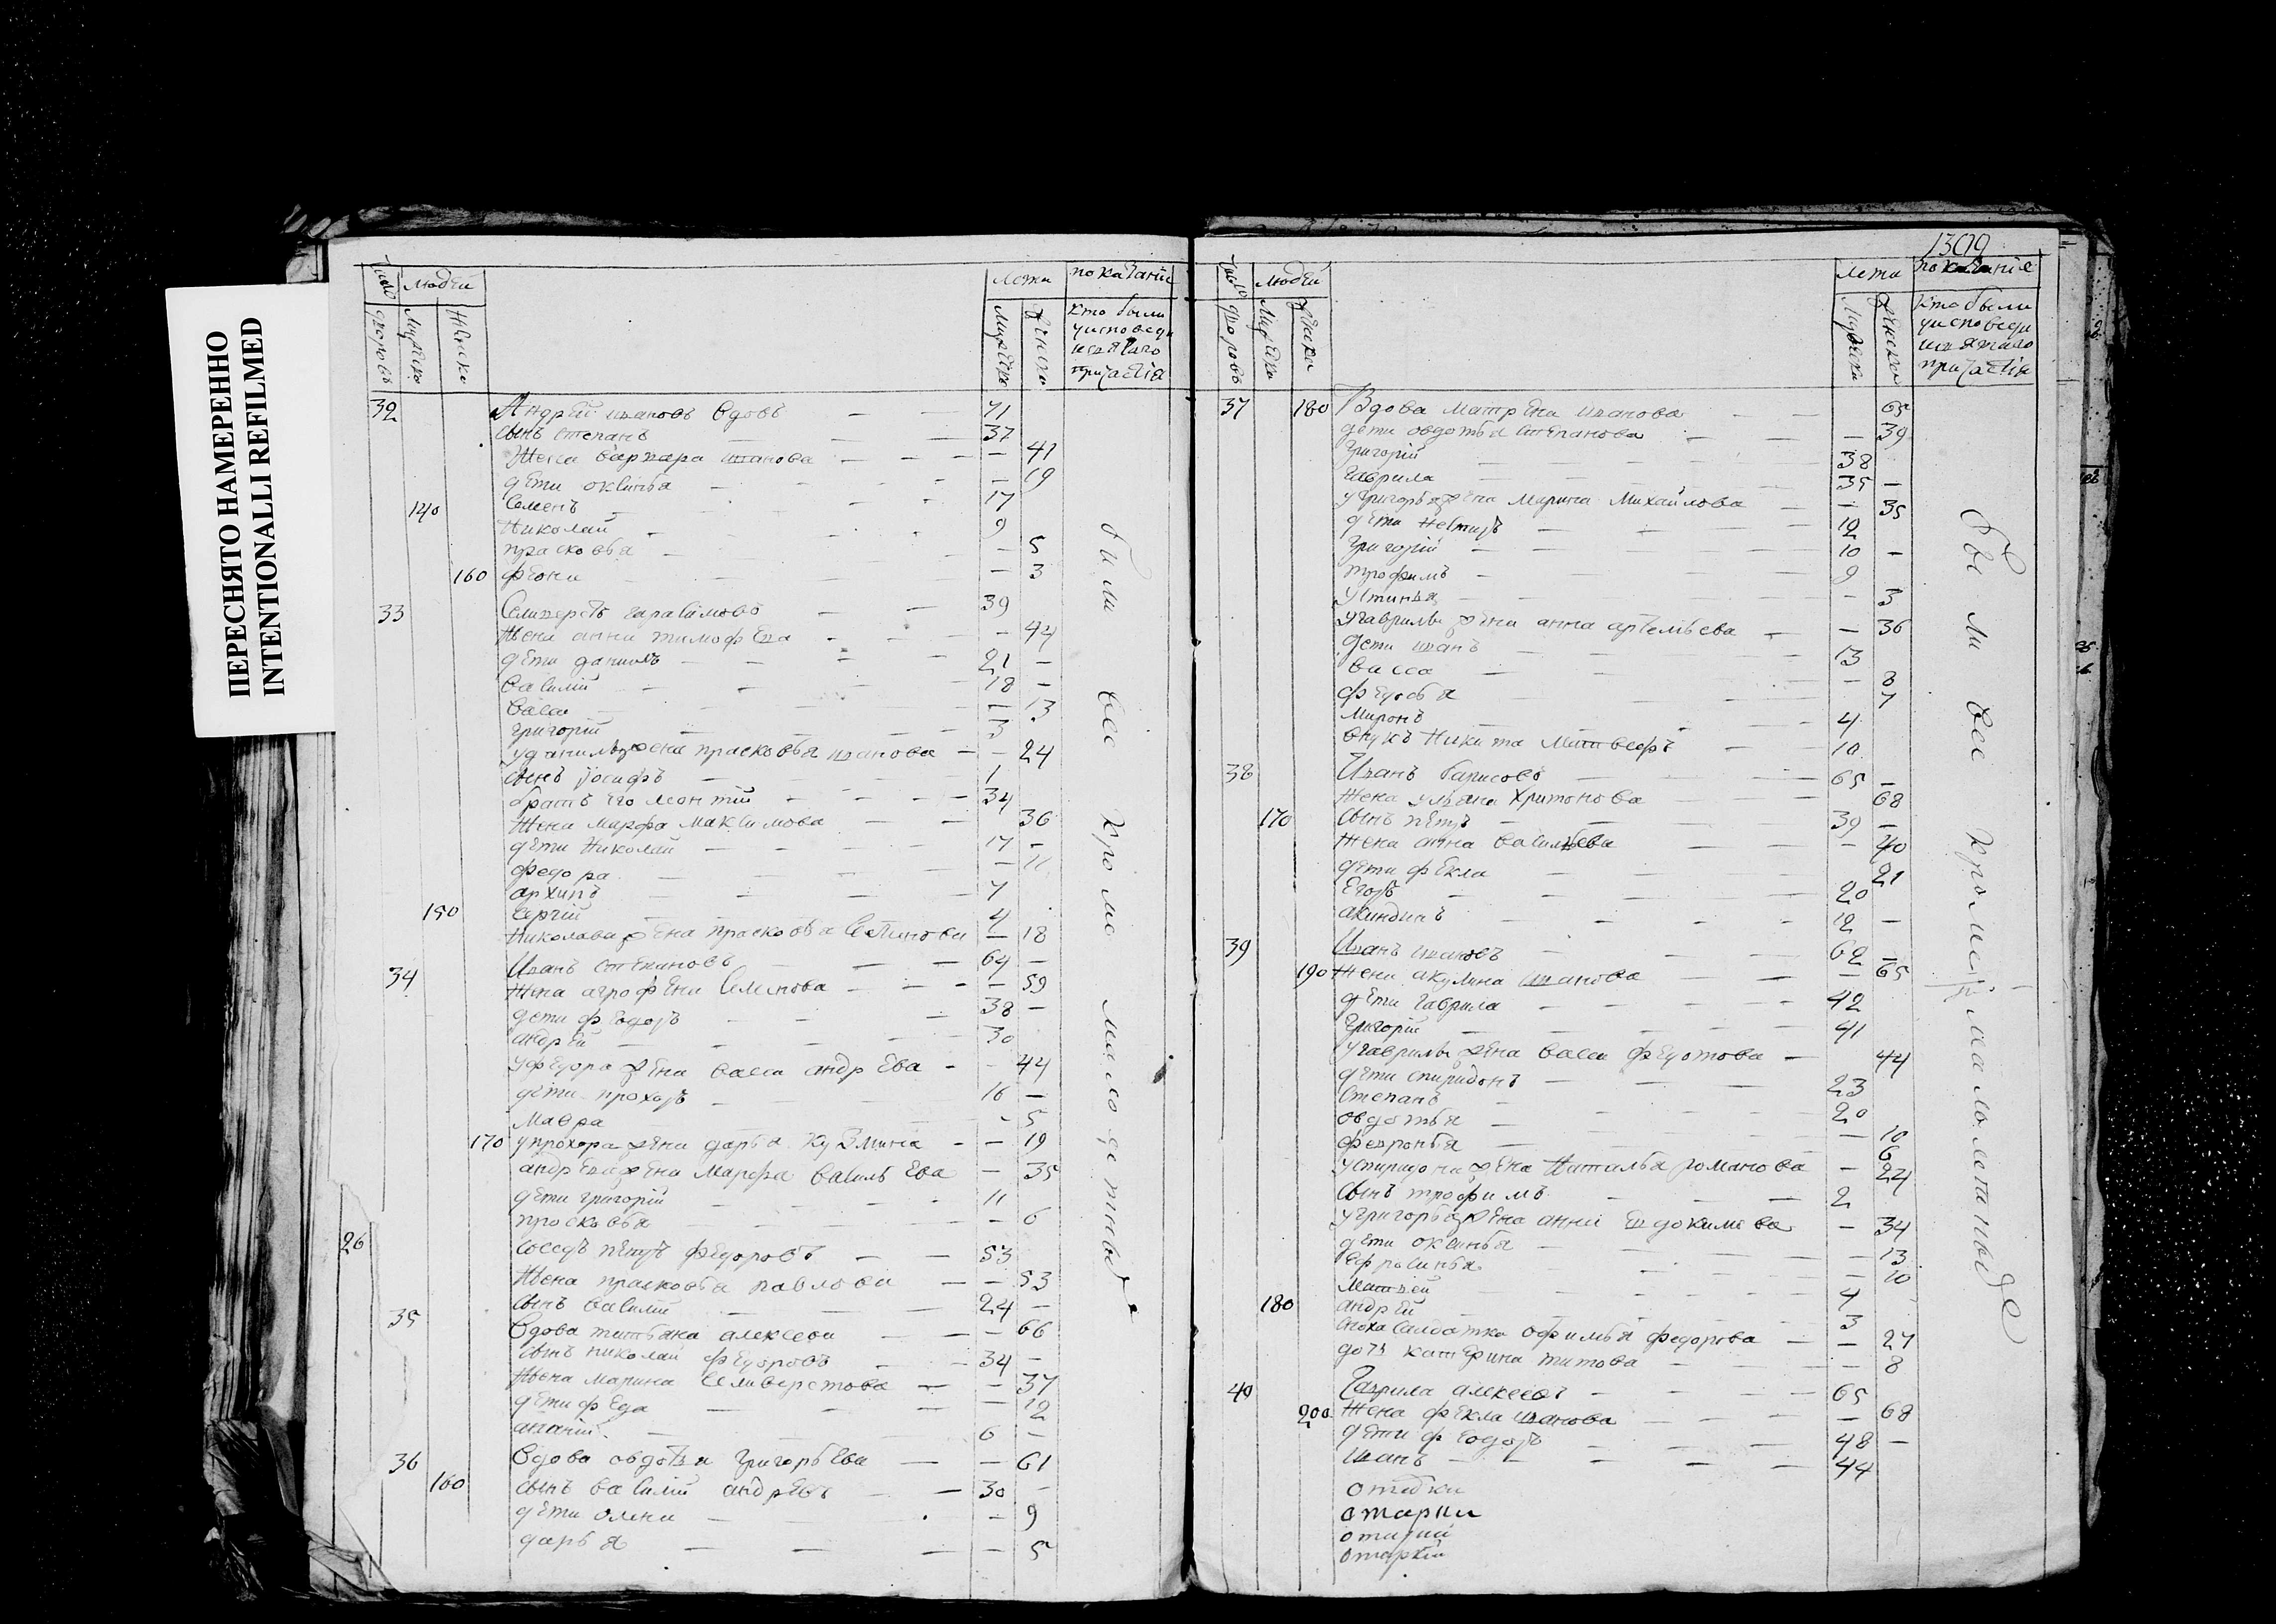 ПЕРЕСНЯТО НАМЕРЕННО
INTENTIONALLI REFILMED
число дворовъ
людей
мужеска
женска
лета
мужеска
женска
показаніи
кто были
уисповеди
исвятаго
причастія
32 Андрей ивановъ вдовъ 71
сынъ степанъ 37
жена варвара иванова 41
дети оксинья 19
140 Семенъ 17
Николай 9
прасковья 5
160 феона 3
33 Селиверстъ гарасимовъ 39
жена анна тимофева 44
дети данилъ 21
василий 18
васса 13
григорий 3
уданилы жена прасковья иванова 24
сынъ иосифъ 1
братъ его леонтий 34
жена марфа максимова 36
дети Николай 17
федора 11
архипъ 7
150 сергий 4
Николава жена прасковья 18
34 Иванъ степановъ 64
жена агрофена Семенова 59
дети феодоръ 38
андрей 30
уфедора жена васса андрева 44
дети прохоръ 16
мавра 5
170 упрохора жена дарья Кузмина 19
андрева жена Марфа василева 35
дети григорий 11
просковья 6
26
соседъ петръ федоровъ 53
жена прасковья павлова 53
сынъ василий 24
35 Вдова татьяна алексеева 66
сынъ николай федоровъ 34
жена марина Селиверстова 37
дети феда 12
6
36 Вдова овдотья григорьева 61
160 сынъ василий андревъ 30
дети олена 9
дарья 5
были все кроме малолетныхъ
1309
число дворовъ
людей
мужеска
женска
лета
мужеска
женска
показаніе
кто были
уисповеди
исвятаго
причастія
37 180 Вдова матрена иванова 65
дети овдотья степанова 39
Григорий 38
гаврила 35
угригорья жена марина Михайлова 35
дети Нестеръ 12
григорий 10
трофимъ 9
устинья 3
угаврилы жена анна артемьева 36
дети иванъ 13
васса 8
федосья 7
миронъ 4
внукъ Никита матвеефъ 10
38 Иванъ барисовъ 65
жена ульяна Хритонова 68
170 сынъ петръ 39
жена анна васильева 40
дети фекла 21
Егоръ 20
акиндинъ 12
39 Иванъ ивановъ 62
190 жена акулина иванова 65
дети гаврила 42
григорий 41
угаврилы жена васса федотова 44
дети спиридонъ 23
Степанъ 20
овдотья 10
февронья 6
успиридона жена Наталья романова 24
сынъ трофимъ 2
угригорья жена анна евдокимова 34
дети оксинья 13
ефросинья 10
Матвей 4
180 андрей 3
сноха салдатка офимья федорова 27
дочь катерина титова 8
40 Гаврила алексеевъ 65
200 жена фекла иванова 68
дети феодоръ 48
иванъ 44
были все кроме малолетныхъ